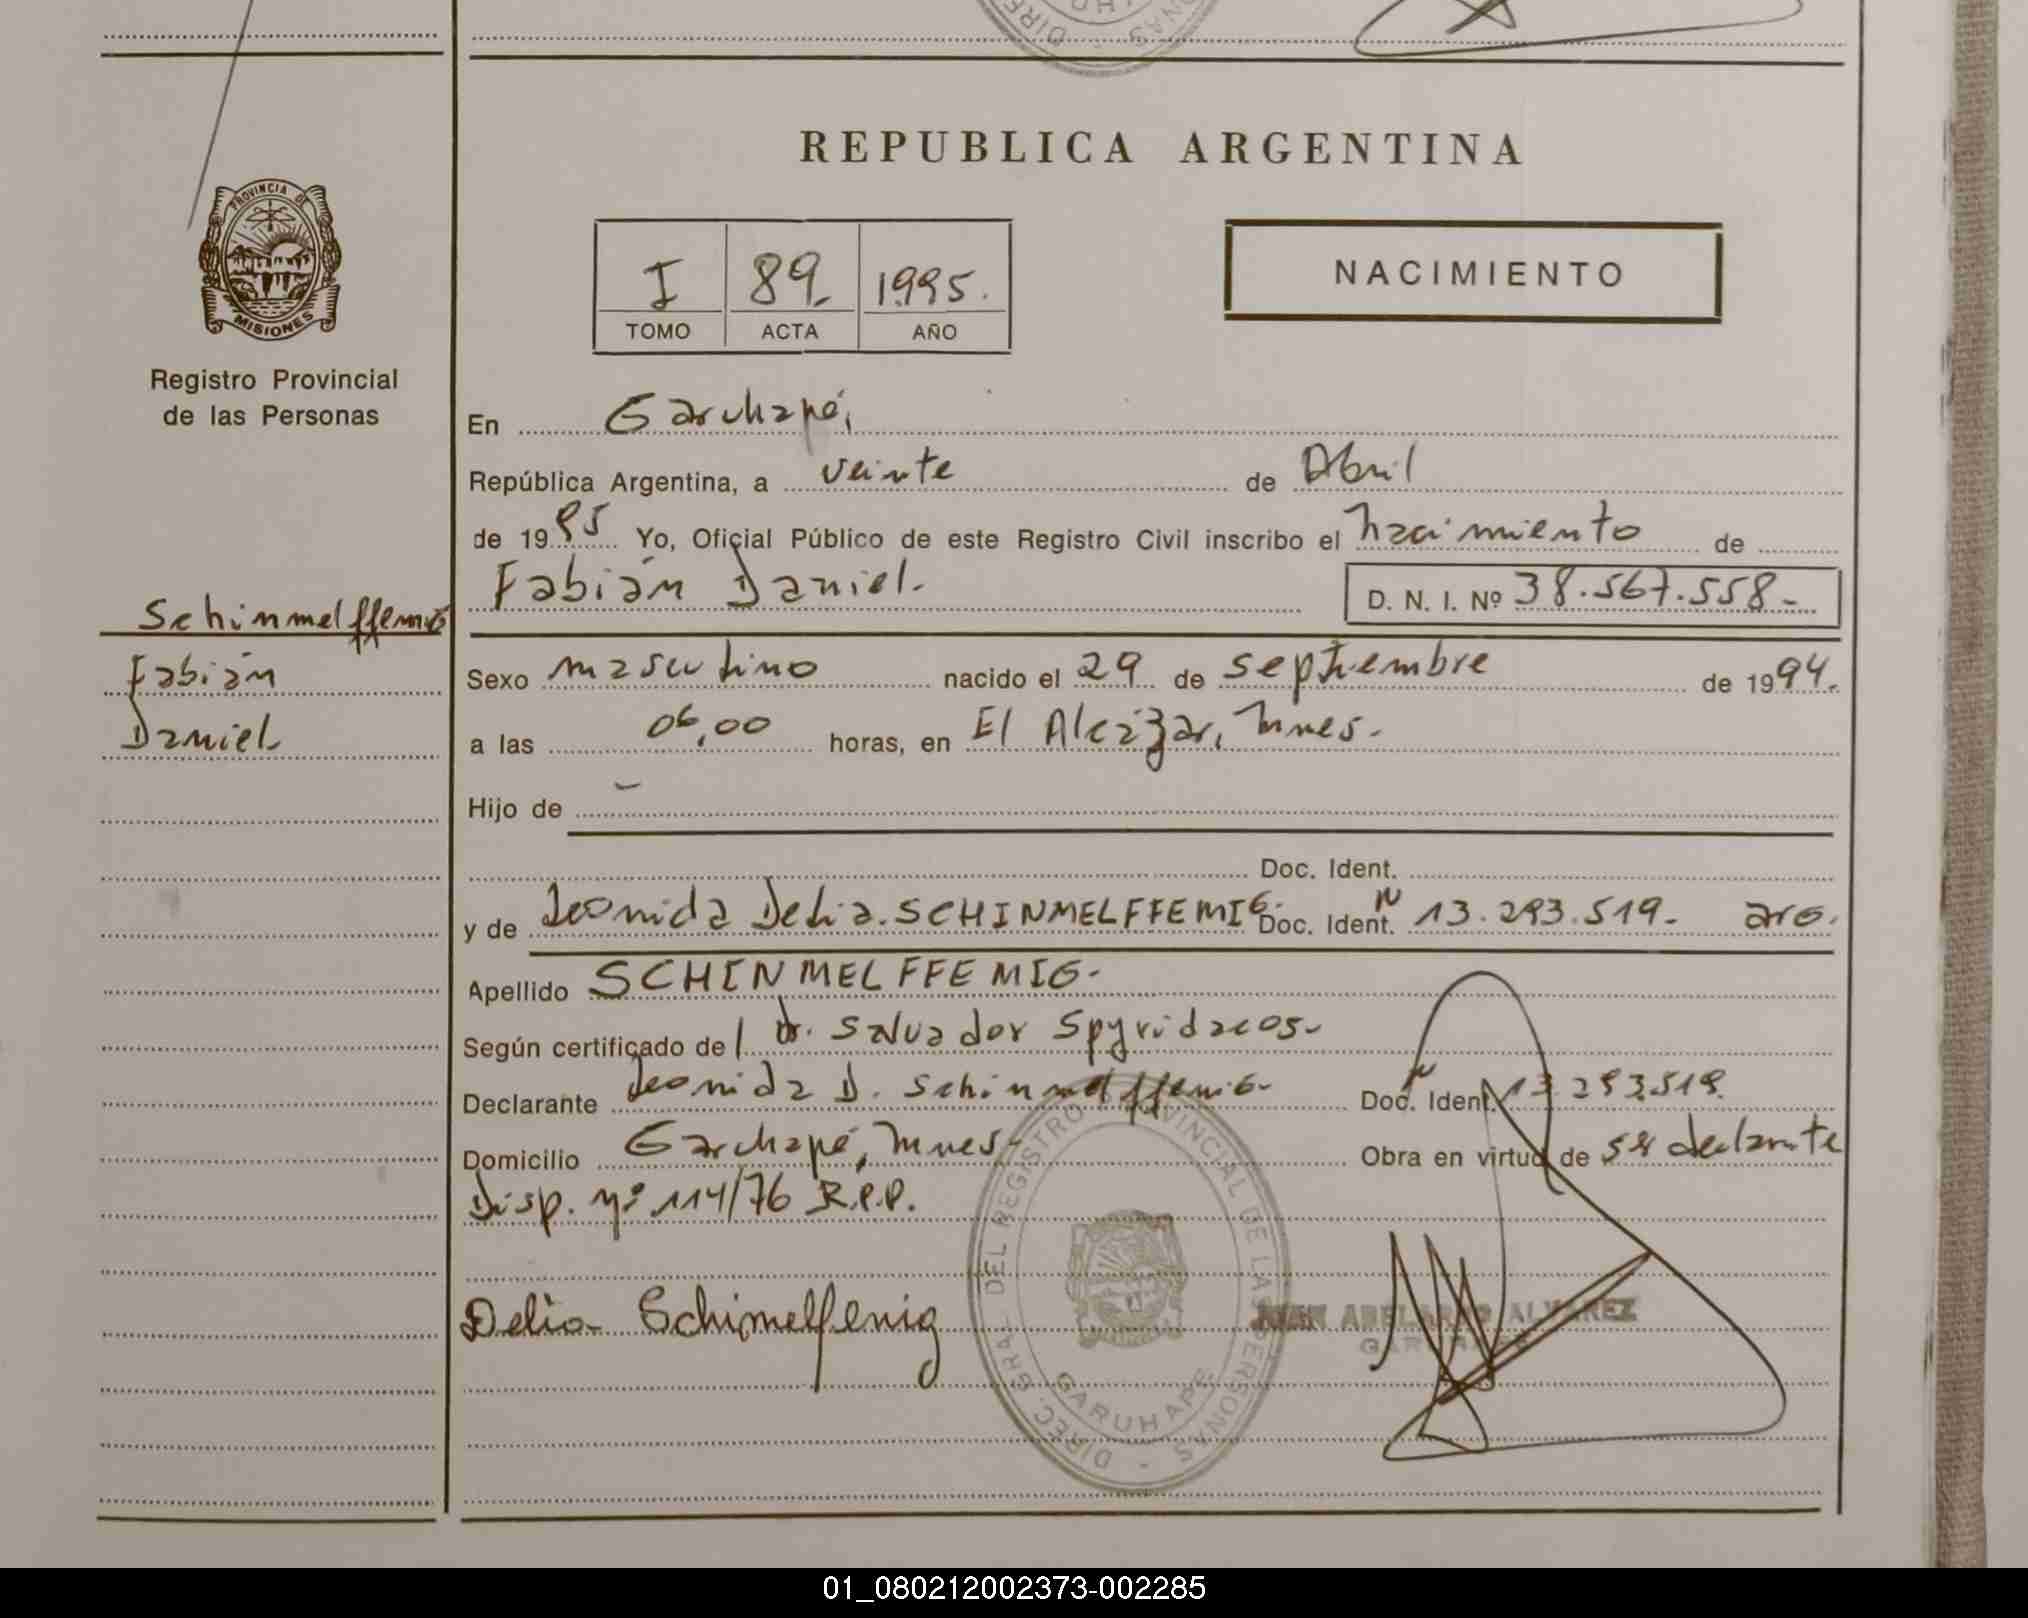 REPUBLICA ARGENTINA
PROVINCIA DE
MISIONES
Registro Provincial
de las Personas
I 89. 1995.
TOMO ACTA AÑO
NACIMIENTO
En Garuhapé,
República Argentina, a veinte de Abril
de 1995 Yo, Oficial Público de este Registro Civil inscribo el nacimiento de
Fabián Daniel.
D. N. I. Nº 38.567.558-
Schinmelffemig
Fabián
Daniel
Sexo masculino nacido el 29 de septiembre de 1994.
a las 06,00 horas, en El Alcázar, Mnes.
Hijo de -
Doc. Ident.
y de Leonida Delia. SCHINMELFFEMIG- Doc. Ident. N 13.293.519- arg.
Apellido SCHINMELFFEMIG-
Según certificado del dr. Salvador Spyridacos-
Declarante Leonida D. Schinmelffemig- Doc. Ident. N 13.293.519.
Domicilio Garuhapé, Mnes- Obra en virtud de ser declarante
Disp. Nº 114/76 R.P.P.
Delia Schimelfenig
DIREC. GRA. DEL REGISTRO PROVINCIAL DE LAS PERSONAS -
GARUHAPE
JUAN ABELARDO ALVAREZ
01_080212002373-002285